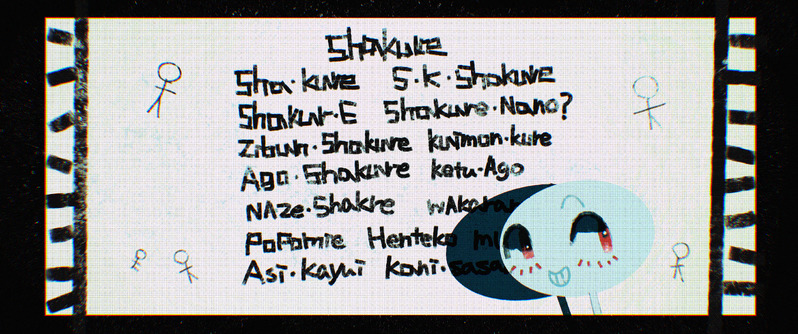 Shakure
Sha・kure S・K・Shakure
Shakur・E Shakure・Nano?
Zibun・Shakure kuimon・kure
Ago・Shakure ketu・Ago
NAze・Shakre wAkaran
PoPomie Henteko
Asi・kayui Kani・sasa